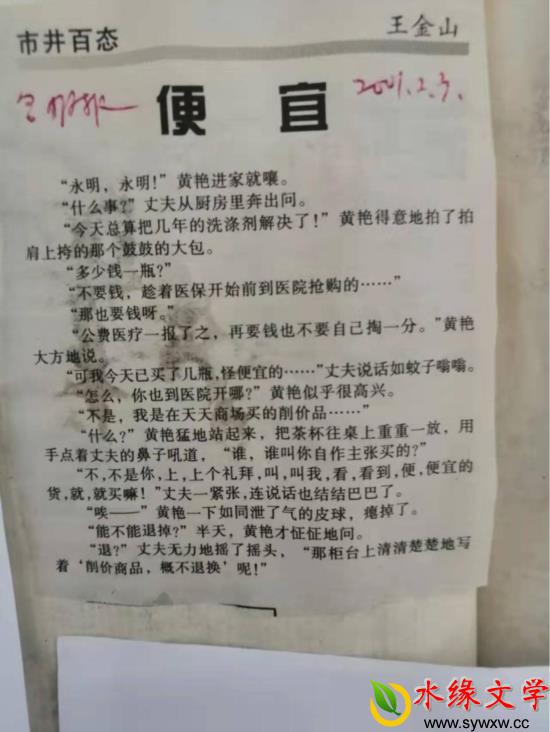 市井百态
王金山
便 宜
2001.2.3.
“永明，永明！”黄艳进家就嚷。
“什么事？”丈夫从厨房里奔出问。
“今天总算把几年的洗涤剂解决了！”黄艳得意地拍了拍
肩上挎的那个鼓鼓的大包。
“多少钱一瓶？”
“不要钱，趁着医保开始前到医院抢购的……”
“那也要钱呀。”
“公费医疗一报了之，再要钱也不要自己掏一分。”黄艳
大方地说。
“可我今天已买了几瓶,怪便宜的……”丈夫说话如蚊子嗡嗡。
“怎么，你也到医院开哪？”黄艳似乎很高兴。
“不是，我是在天天商场买的削价品……”
“什么？”黄艳猛地站起来，把茶杯往桌上重重一放，用
手点着丈夫的鼻子吼道，“谁，谁叫你自作主张买的？”
“不,不是你,上,上个礼拜,叫,叫我,看,看到,便,便宜的
货,就,就买嘛！”丈夫一紧张,连说话也结结巴巴了。
“唉——”黄艳一下如同泄了气的皮球，瘪掉了。
“能不能退掉？”半天，黄艳才怔怔地问。
“退？”丈夫无力地摇了摇头，“那柜台上清清楚楚地写
着‘削价商品，概不退换’呢！”
水缘文学
www.sywxw.cc